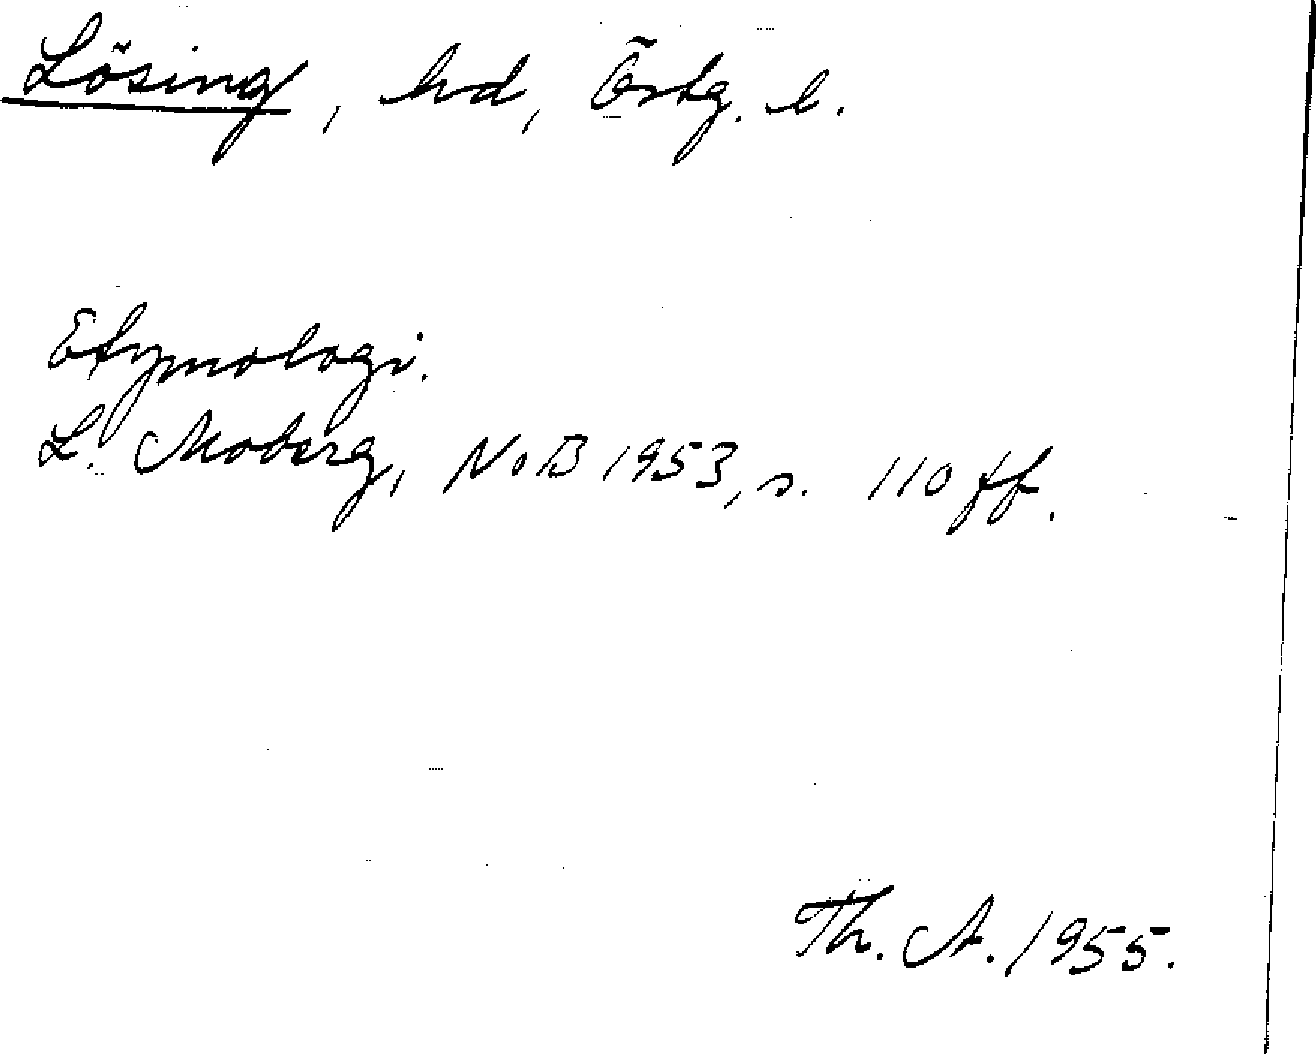 Lösing, hd, Östg. l.
Etymologi.
L. Moberg, NoB 1953, s. 110 ff.
Th. A. 1955.